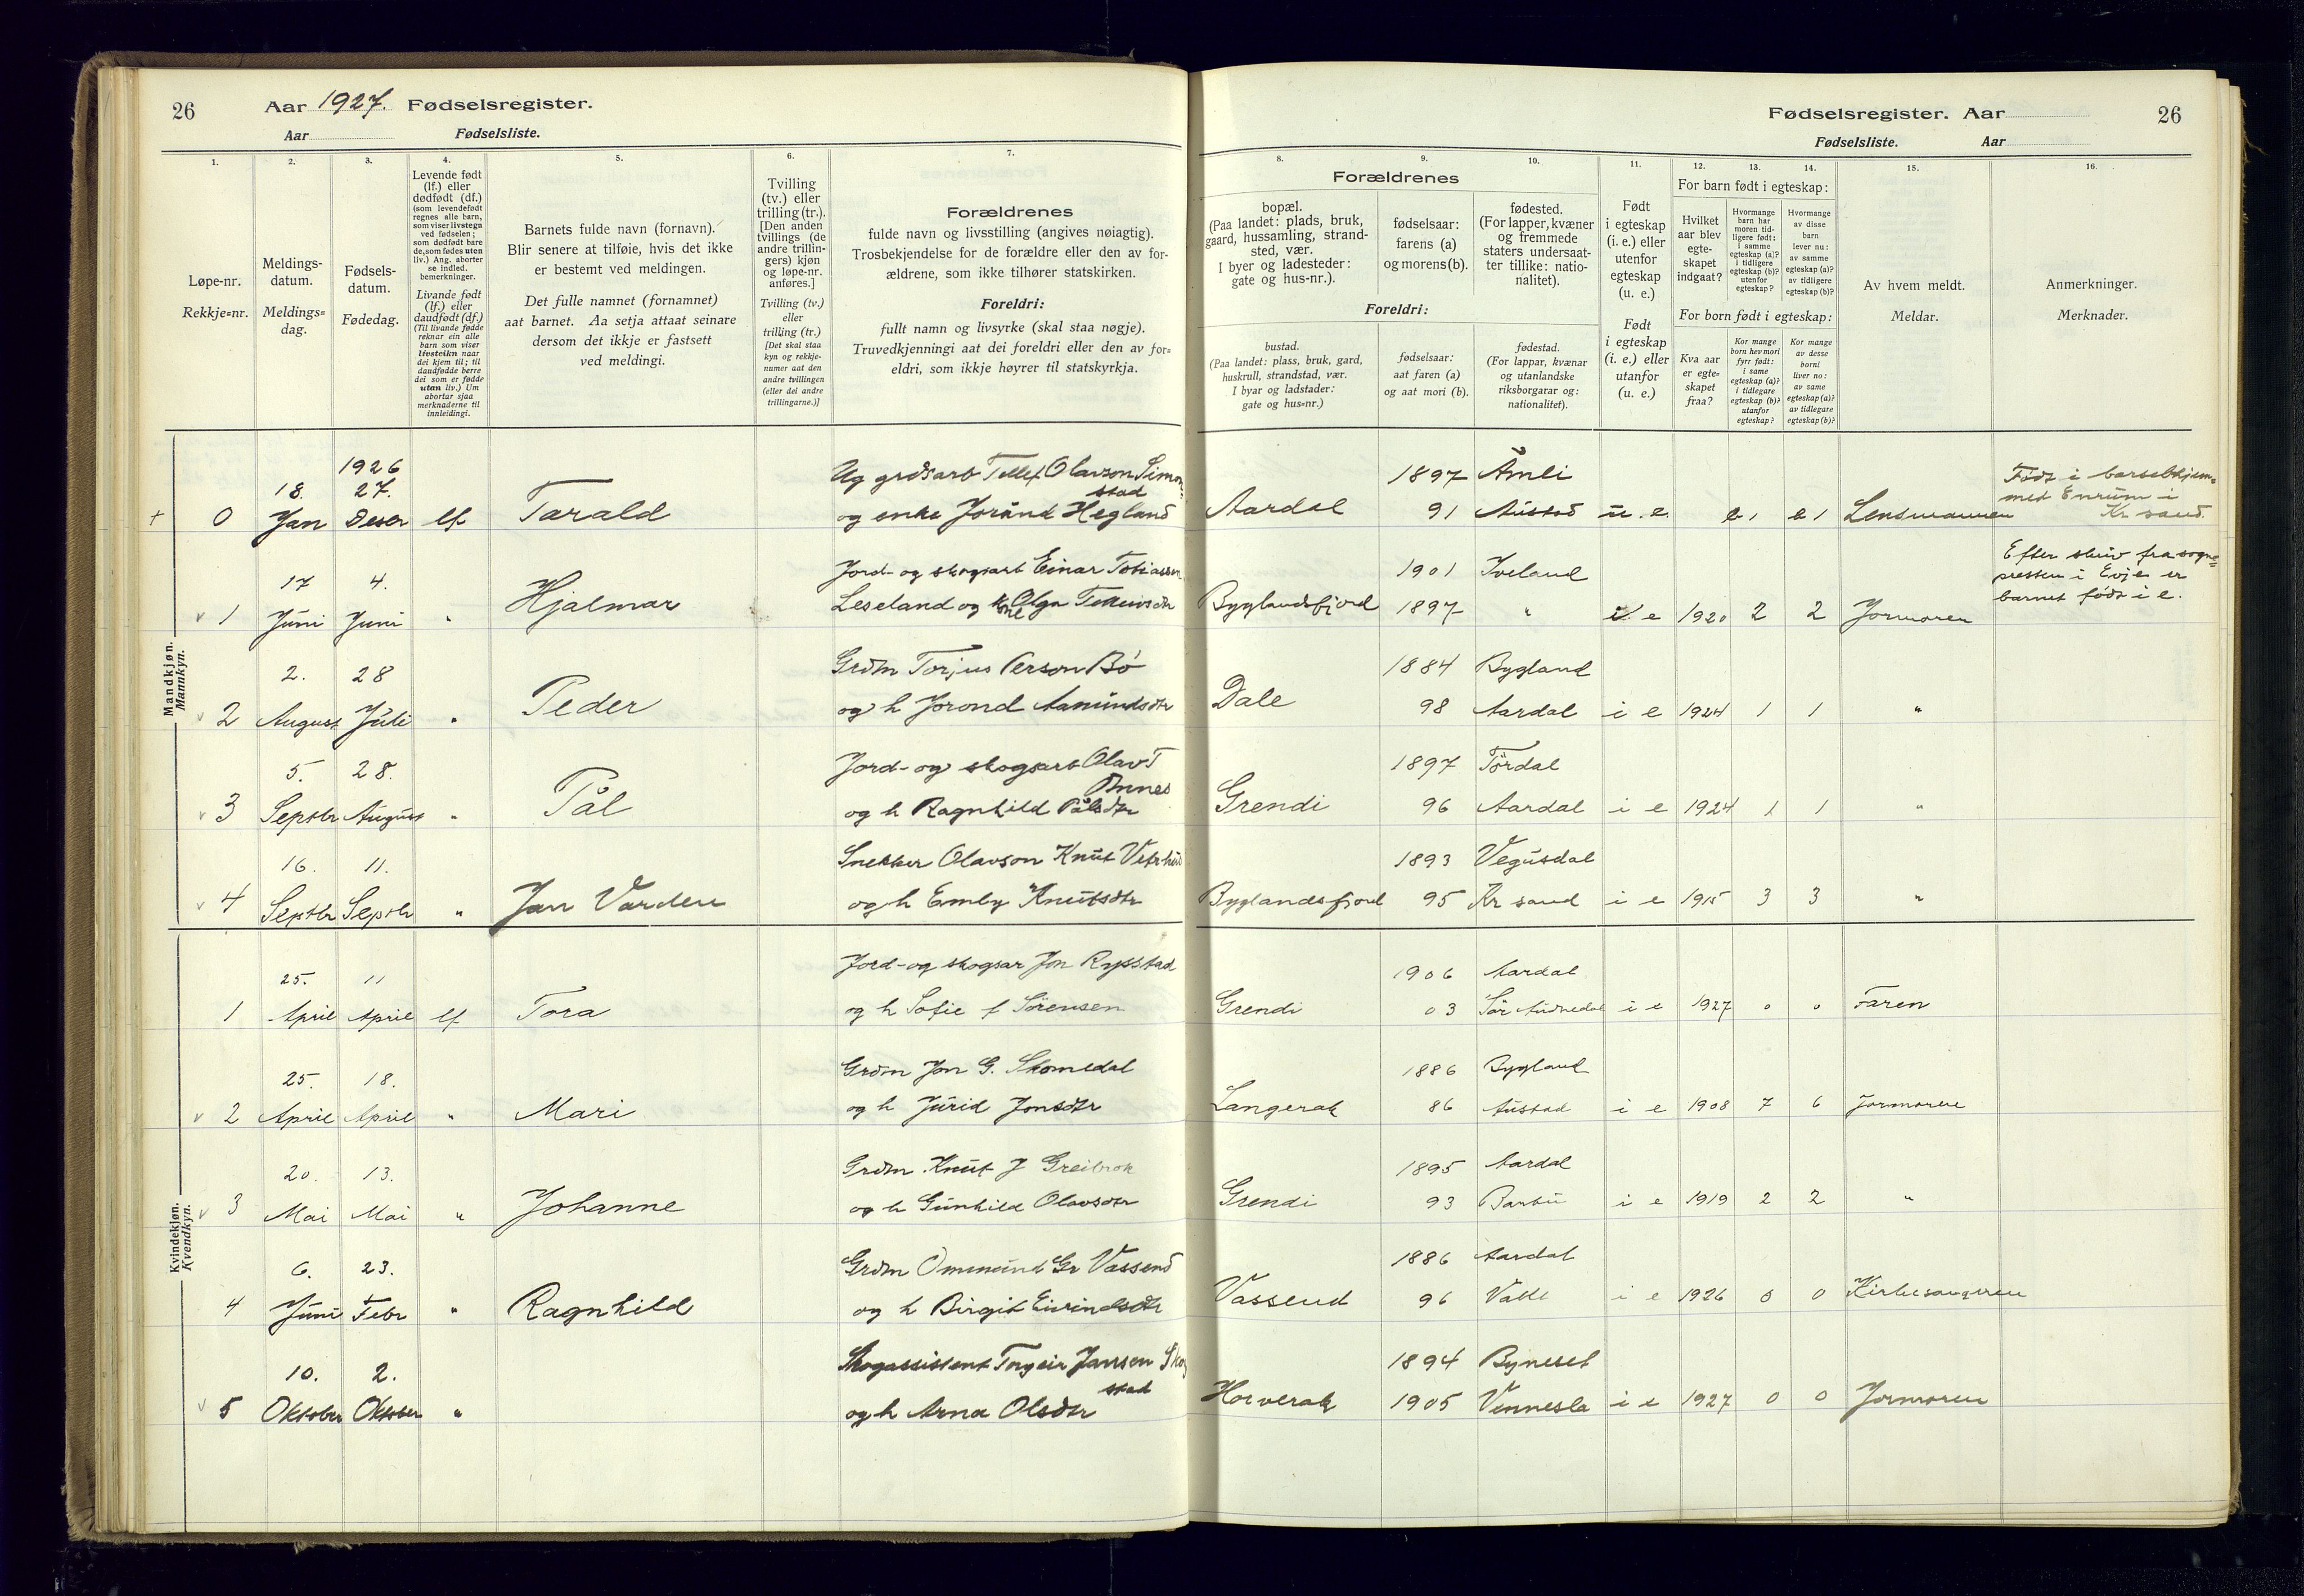 26
Aar 1927. Fødselsregister.
Aar Fødselsliste.
1.
Løpe-nr.
Rekkje=nr.
2.
Meldings-
datum.
Meldings=
dag.
3.
Fødsels-
datum.
Fødedag.
4.
Levende født
(lf.) eller
dødfødt (df.)
(som levendefødt
regnes alle barn,
som viser livstegn
ved fødselen;
som dødfødt bare
de, som fødes uten
liv.) Ang. aborter
se indled.
bemerkninger.
Livande født
(lf.) eller
daudfødt (df.)
(Til livande fødde
reknar ein alle
barn som viser
livsteikn naar
dei kjem til; til
daudfødde berre
dei som er fødde
utan liv.) Um
abortar sjaa
merknaderne til
innleidingi.
5.
Barnets fulde navn (fornavn).
Blir senere at tilføie, hvis det ikke
er bestemt ved meldingen.
Det fulle namnet (fornamnet)
aat barnet. Aa setja attaat seinare
dersom det ikkje er fastsett
ved meldingi.
6.
Tvilling
(tv.) eller
trilling (tr.).
[Den anden
tvillings (de
andre trillin-
gers) kjøn
og løpe-nr.
anføres.]
Tvilling (tv.)
eller
trilling (tr.)
[Det skal staa
kyn og rekkje-
numer aat den
andre tvillingen
(eller dei andre
trillingarne.)]
7.
Forældrenes
fulde navn og livsstilling (angives nøiagtig).
Trosbekjendelse for de forældre eller den av for-
ældrene, som ikke tilhører statskirken.
Foreldri:
fullt namn og livsyrke (skal staa nøgje).
Truvedkjenningi aat dei foreldri eller den av for=
eldri, som ikkje høyrer til statskyrkja.
Mandkjøn.
Mannkyn.
1926
18. 27.
+ 0 Jan Deser lf Tarald
Ug grdsarb Tellef Olavson Simon-
stad
og enke Jorånd Hegland
17 4.
v 1 Juni Juni " Hjalmar
Jord- og skogsarb Einar Tobiassen
Leseland og kone Olga
2. 28
v 2 August Juli " Peder
Grdm Torjus Person Bö
og h Jorond Aanundsdtr
5. 28.
v 3 Septbr August " Pål
Jord- og skogsarb Olav T
Önnes
og h Ragnhild Pålsdtr
16. 11.
v 4 Septbr Septbr " Jan Varden
Snekker Olavson Knut
og h Emly Knutsdtr
Kvindekjøn.
Kvendkyn.
25. 11
1 April April lf Tora
Jord- og skogsar Jon Rysstad
og h Sofie f Sörensen
25. 18.
v 2 April April " Mari
Grdm Jon G. Skomedal
og h Jurid Jonsdtr
20. 13.
v 3 Mai Mai " Johanne
Grdm Knut J Greibrok
og h Gunhild Olavsdtr
6. 23.
4 Juni Febr " Ragnhild
Grdm Ommund Gr Vassend
og h Birgit Eivindsdtr
10. 2.
v 5 Oktober Oktober "
Skogassistent Torgeir Jansen Skog
stad
og h Arna Olsdtr
Fødselsregister. Aar 26
Fødselsliste. Aar
8.
Forældrenes
bopæl.
(Paa landet: plads, bruk,
gaard, hussamling, strand-
sted, vær.
I byer og ladesteder:
gate og hus-nr.).
Foreldri:
bustad.
(Paa landet: plass, bruk, gard,
huskrull, strandstad, vær.
I byar og ladstader:
gate og hus=nr.)
9.
fødselsaar:
farens (a)
og morens (b).
fødselsaar:
aat faren (a)
og aat mori (b).
10.
fødested.
(For lapper, kvæner
og fremmede
staters undersaat-
ter tillike: natio-
nalitet).
fødestad.
(For lappar, kvænar
og utanlandske
riksborgarar og:
nationalitet).
11.
Født
i egteskap
(i. e.) eller
utenfor
egteskap
(u. e.)
Født
i egteskap
(i. e.) eller
utanfor
(u. e.)
12. 13. 14.
For barn født i egteskap:
Hvilket
aar blev
egte-
skapet
indgaat?
Hvormange
barn har
moren tid-
ligere født:
i samme
egteskap (a)?
i tidligere
egteskap (b)?
utenfor
egteskap?
Hvormange
av disse
barn
lever nu:
av samme
egteskap (a)?
av tidligere
egteskap (b)?
For born født i egteskap:
Kva aar
er egte-
skapet
fraa?
Kor mange
born hev mori
fyrr født:
i same
egteskap (a)?
i tidlegare
egteskap (b)?
utanfor
egteskap?
Kor mange
av desse
borni
liver no:
av same
egteskap (a)?
av tidlegare
egteskap (b)?
15.
Av hvem meldt.
Meldar.
16.
Anmerkninger.
Merknader.
1897 Åmli
Aardal 91 Austad u. e. e 1 e 1 Lensmannen
Födt i barselhjem-
met Enrum i
Kr sand.
1901 Iveland
Byglandsfjord 1897 " i e 1920 2 2 Jormoren
Efter skriv fra sogne-
presten i Evje er
barnet födt i e.
1884 Bygland
Dale 98 Aardal i e 1924 1 1 "
1897 Tördal
Grendi 96 Aardal i e 1924 1 1 "
1893 Vegusdal
Byglandsfjord 95 Kr sand i e 1915 3 3 "
1906 Aardal
Grendi 03 Sör Audnedal i e 1927 0 0 Faren
1886 Bygland
Langerak 86 Austad i e 1908 7 6 Jormoren
1895 Aardal
Grendi 93 Barbu i e 1919 2 2 "
1886 Aardal
Vassend 96 Valle i e 1926 0 0 Kirkesangeren
1894 Byneset
Horverak 1905 Vennesla i e 1927 0 0 Jormoren